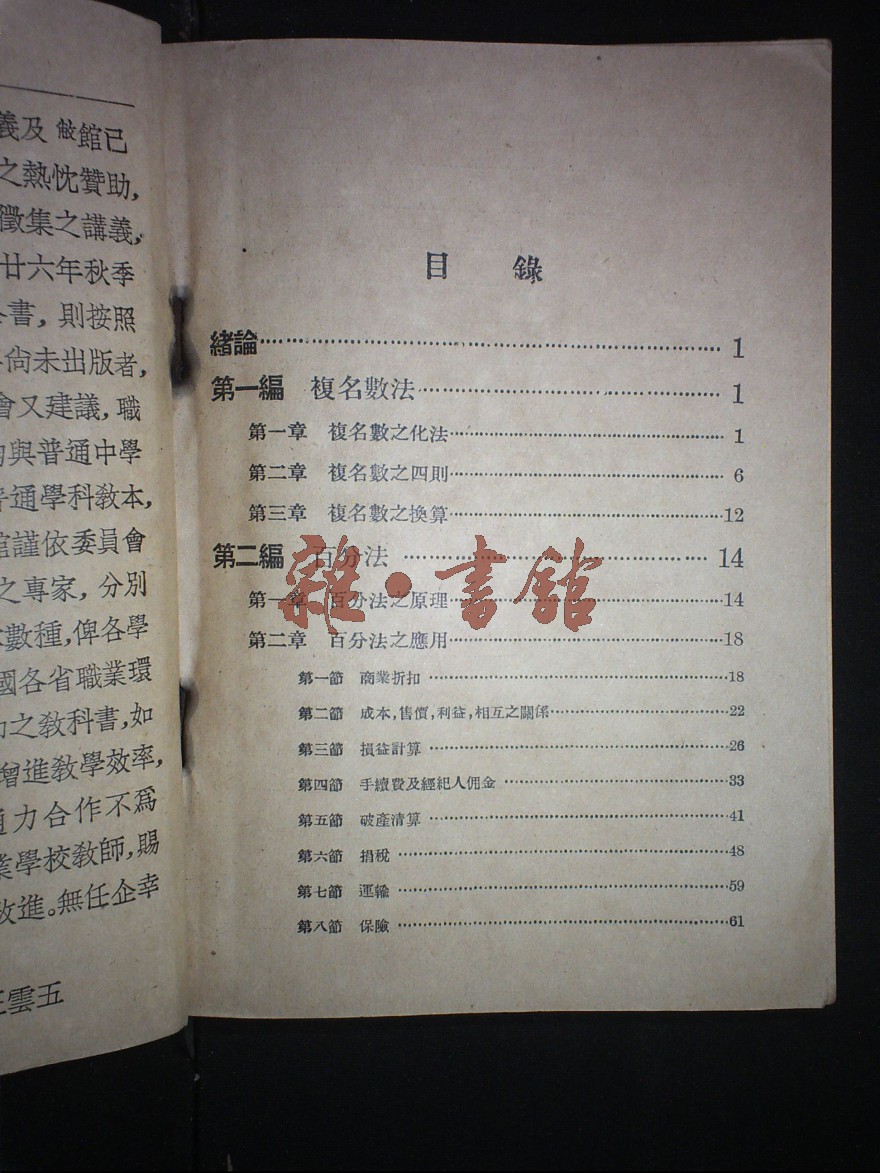 義及敝館已
之熱忱贊助,
徵集之講義,
廿六年秋季
書,則按照
尚未出版者,
會又建議,職
與普通中學
普通學科教本,
館謹依委員會
之專家,分別
數種,俾各學
國各省職業環
之教科書,如
增進教學效率,
通力合作不爲
業學校教師,賜
改進。無任企幸
王雲五
目錄
緒論 1
第一編 複名數法 1
第一章 複名數之化法 1
第二章 複名數之四則 6
第三章 複名數之換算 12
第二編 百分法 14
第一章 百分法之原理 14
第二章 百分法之應用 18
第一節 商業折扣 18
第二節 成本,售價,利益,相互之關係 22
第三節 損益計算 26
第四節 手續費及經紀人佣金 33
第五節 破產清算 41
第六節 捐稅 48
第七節 運輸 59
第八節 保險 61
雜·書館